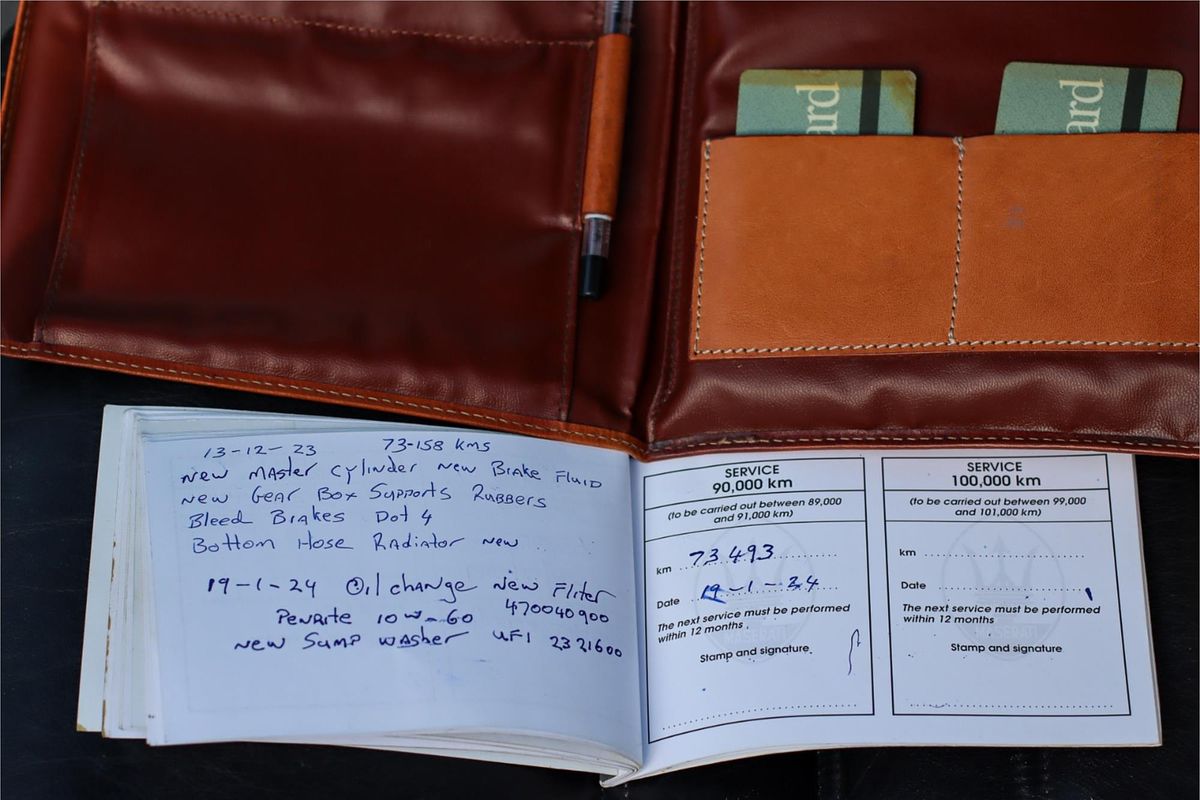 ard
ard
13-12-23 73-158 kms
New Master Cylinder New Brake Fluid
New Gear Box Supports Rubbers
Bleed Brakes Dot 4
Bottom Hose Radiator New
19-1-24 Oil change New Fliter
470040900
Penrite 10w-60
New Sump washer UFI 2321600
SERVICE
90,000 km
(to be carried out between 89,000
and 91,000 km)
km 73493
Date 19-1-24
The next service must be performed
within 12 months
Stamp and signature
SERVICE
100,000 km
(to be carried out between 99,000
and 101,000 km)
km
Date
The next service must be performed
within 12 months
Stamp and signature